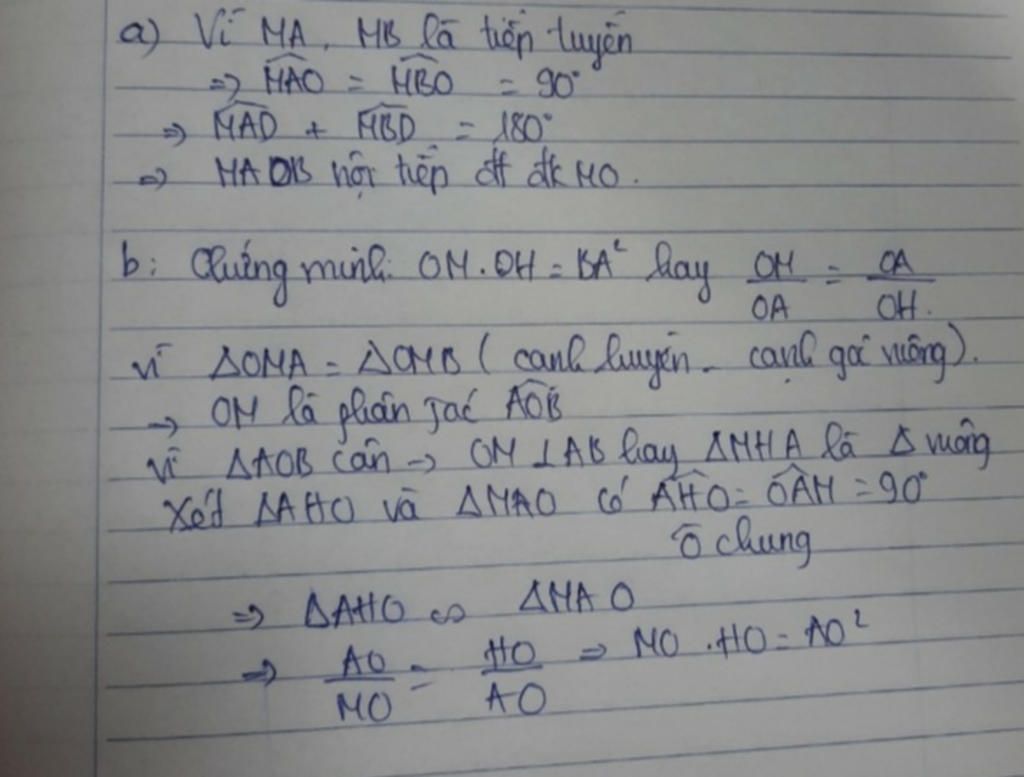 a) Vì MA, MB là tiếp tuyến
=> \widehat{MAO} = \widehat{MBO} = 90°
=> \widehat{MAO} + \widehat{MBO} = 180°
=> MAOB nội tiếp đt đk MO.
b: Chứng minh: OM.OH = BA² hay OM/OA = OA/OH.
vì ΔOMA = ΔOMB (cạnh huyền - cạnh góc vuông).
→ OM là phân giác \widehat{AOB}
vì ΔAOB cân → OM ⊥ AB hay ΔMHA là Δ vuông
Xét ΔAHO và ΔMAO có \widehat{AHO} = \widehat{OAM} = 90°
Ô chung
=> ΔAHO ∽ ΔMAO
=> AO/MO = HO/AO => MO.HO = AO²